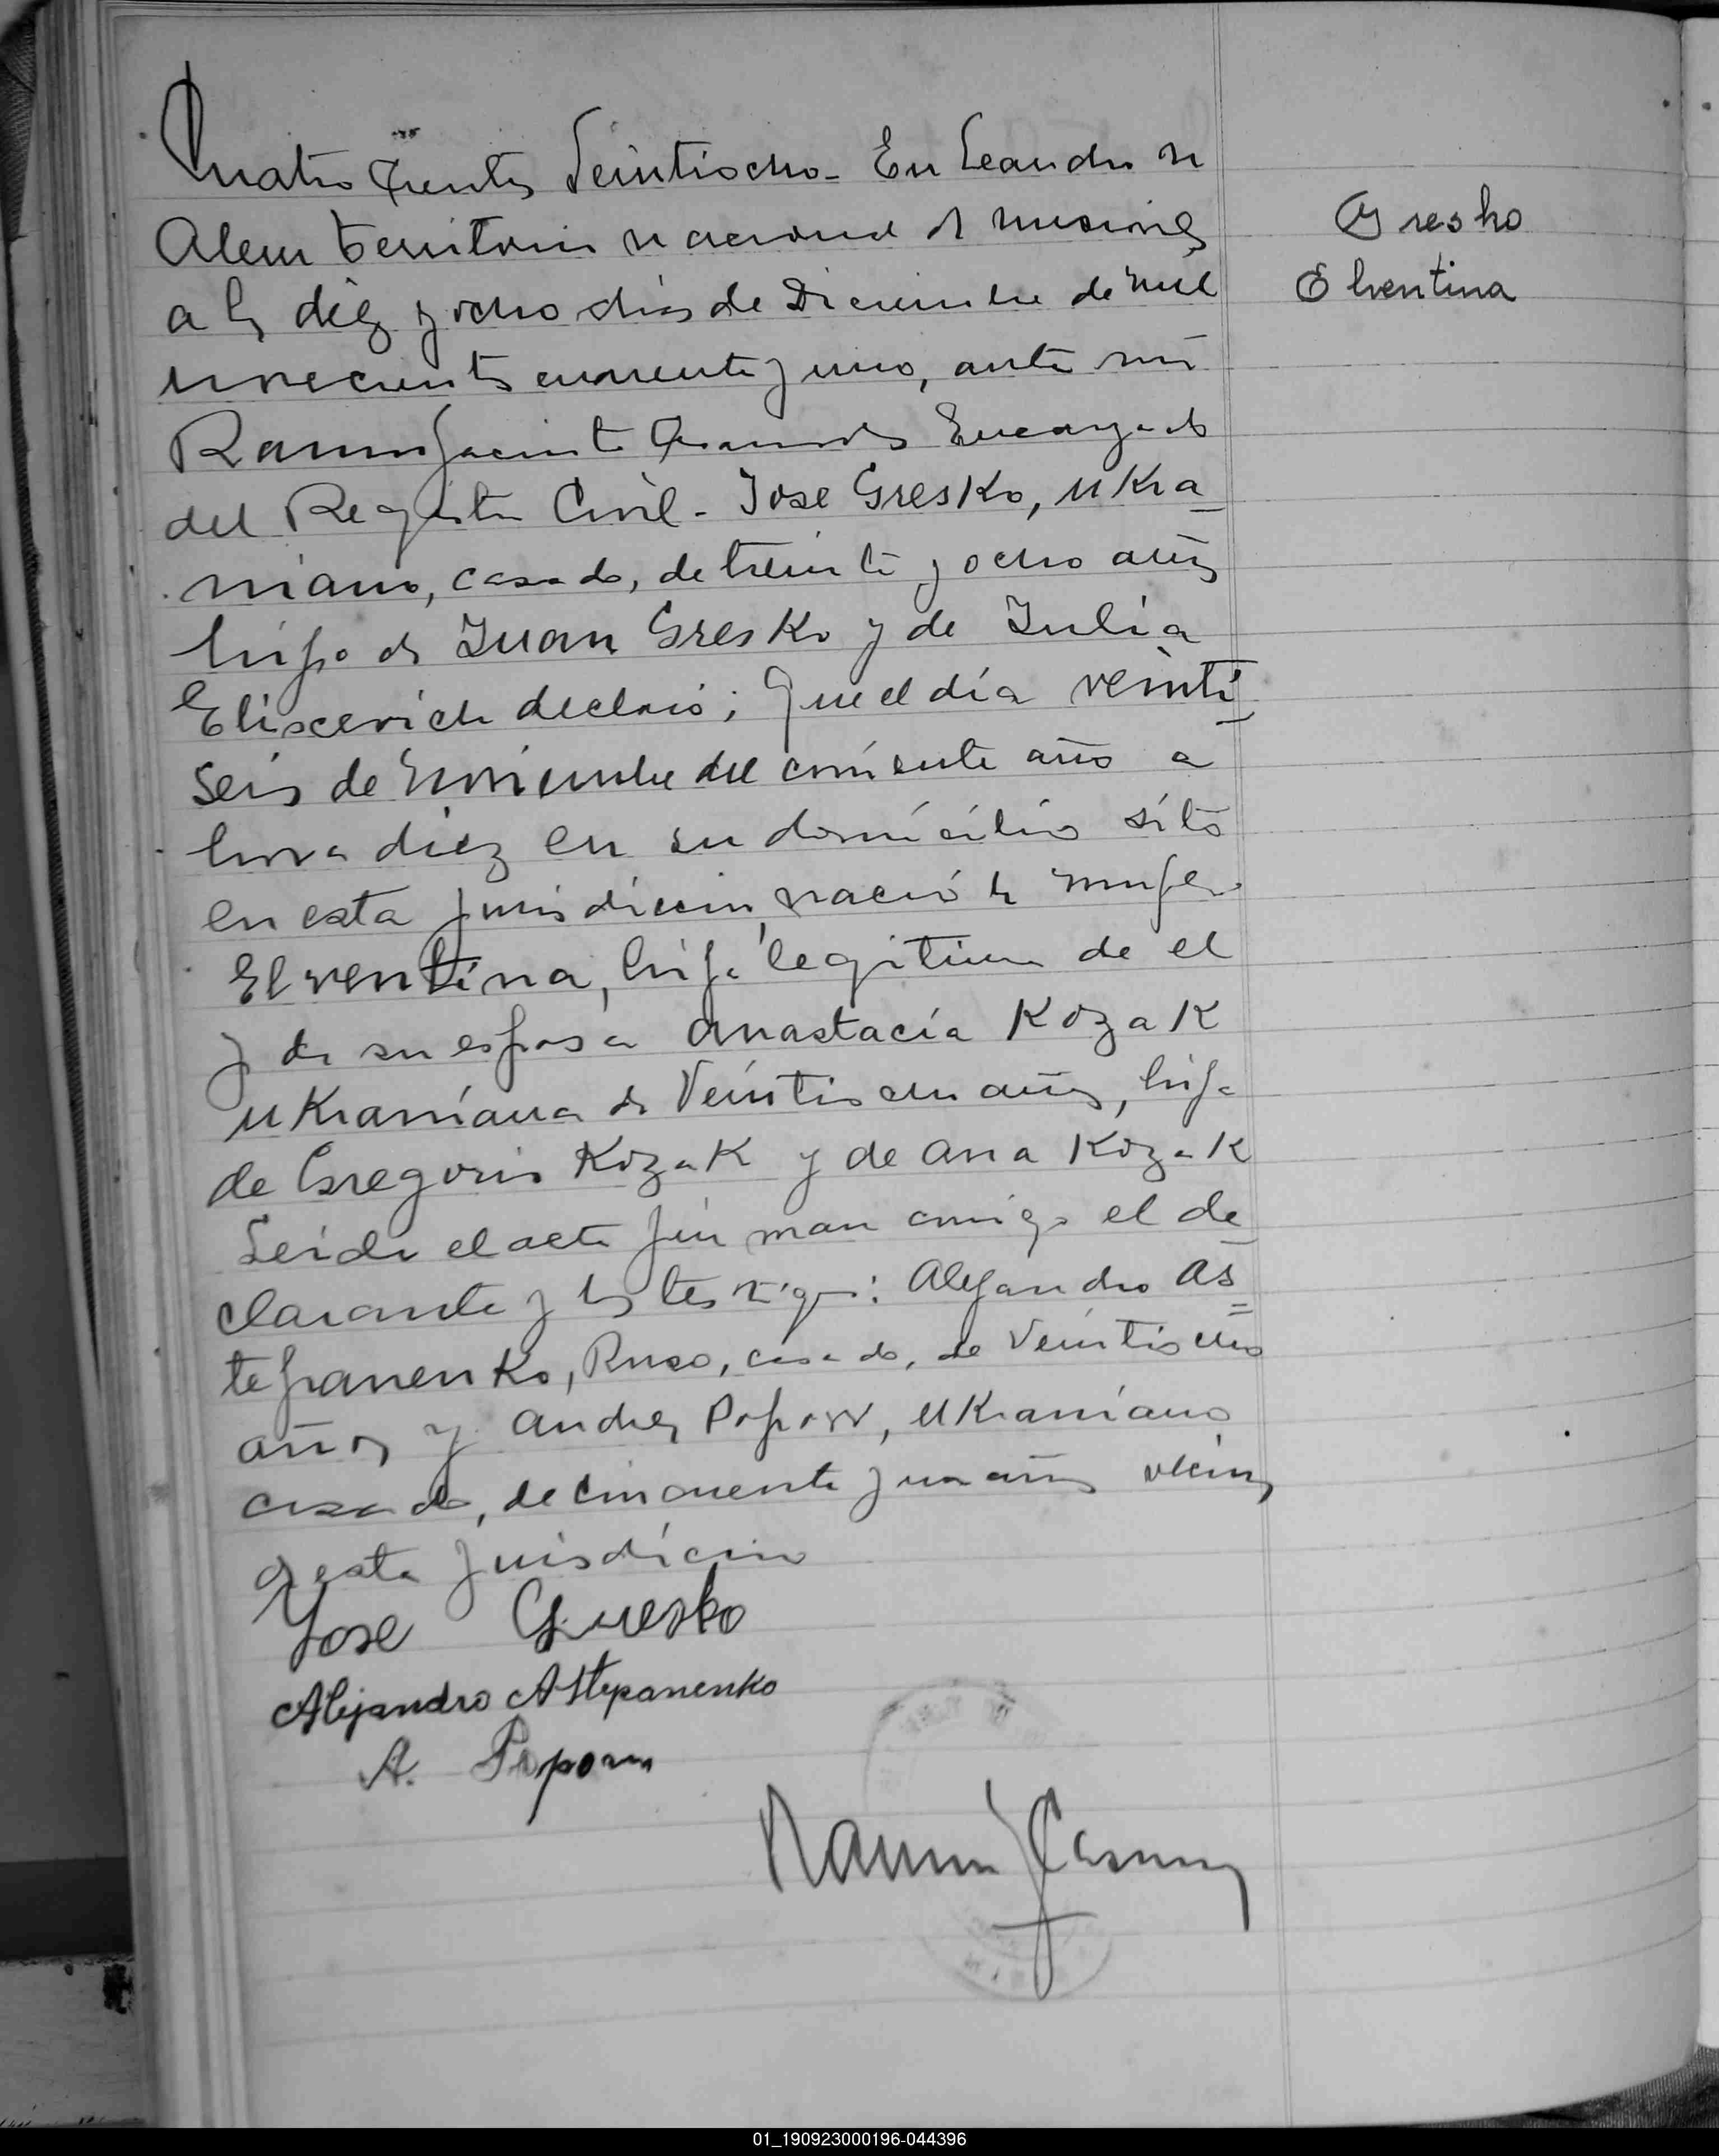 Cuatrocientos Veintiocho - En Leandro N
Alem territorio nacional de Misiones
a los diez y ocho días de Diciembre de mil
novecientos cuarenta y uno, ante mi
Ramon Jacinto Encargado
del Registro Civil - Jose Gresko, ukra-
niano, casado, de treinta y ocho años
hijo de Juan Gresko y de Julia
Eliscevich declaró; Que el día veinti-
seis de Noviembre del corriente año a
hora diez en su domicilio sito
en esta jurisdiccion, nació la mujer
Elventina, hija legitima de el
y de su esposa Anastacia Kozak
ukraniana de Veintiocho años, hija
de Gregorio Kozak y de Ana Kozak
Leida el acta firman conmigo el de-
clarante y los testigos: Alejandro As=
tepanenko, Ruso, casado, de Veintiocho
años y Andres Popow, ukraniano
casado, de cincuenta y un años vecinos
de esta jurisdiccion
Jose Gresko
Alejandro Astepanenko
A. Popow
Ramon J
Gresko
Elventina
01_190923000196-044396